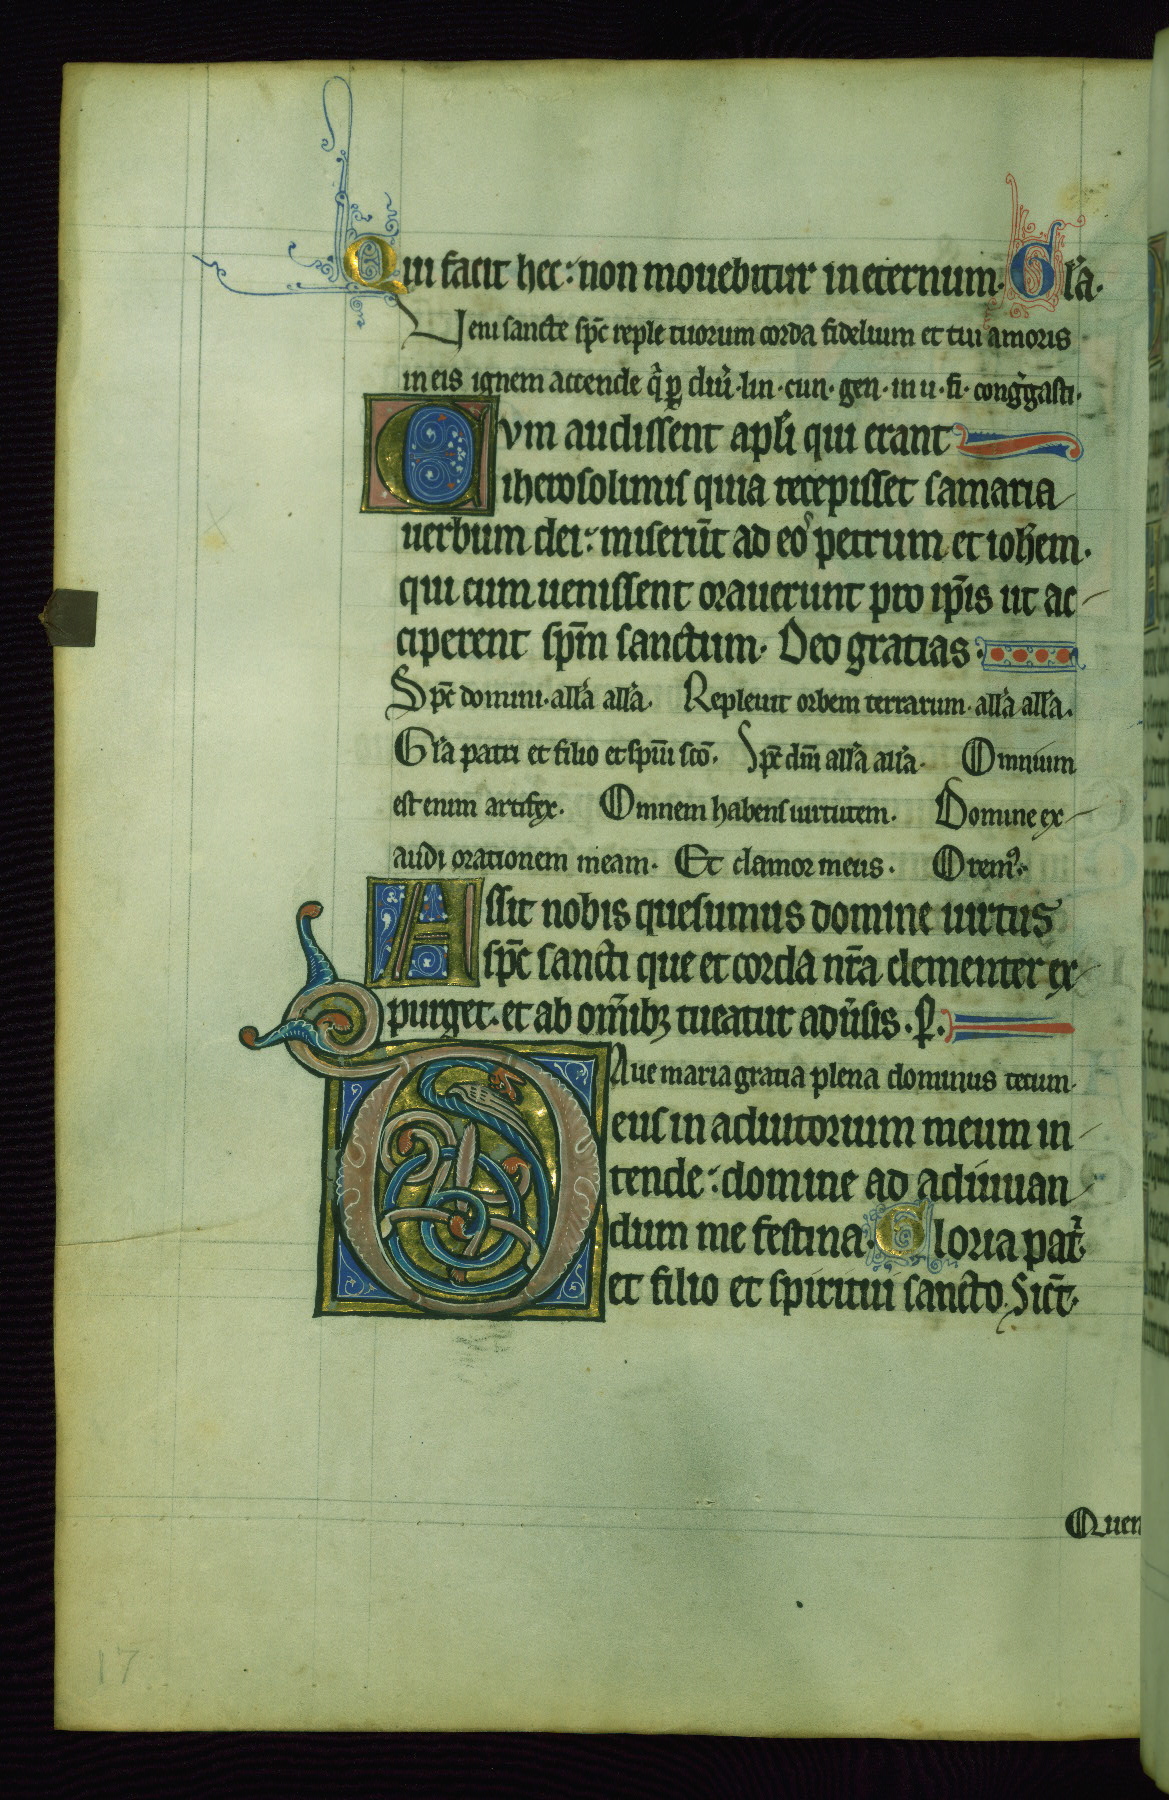 Qui facit hec: non mouebitur in eternum. Gl'a.
Ueni sancte sp̄c reple tuorum corda fidelium et tui amoris
in eis ignem accende q̇ ꝑ diu̾·lin·cun·gen·in u·fi·cong̾gasti·
Cvm audissent apl'i qui erant
iherosolimis quia recepisset samaria
uerbum dei: miserūt ad eoꝰ petrum et ioh̄em.
qui cum uenissent orauerunt pro ip̄is ut ac
ciperent sp̄m sanctum. Deo gratias.
Sp̄c domini. all'a all'a. Repleuit orbem terrarum. all'a all'a.
Gl'a patri et filio et sp̄iui scō. Sp̄c dn̄i all'a all'a. Omnium
est enim artifex. Omnem habens uirtutem. Domine ex
audi orationem meam. Et clamor meus. Oremꝰ.
Assit nobis quesumus domine uirtus
sp̄c sancti que et corda nr̄a clementer ex
purget. et ab om̄ibꝫ tueatur adu̾sis. P̱.
Aue maria gratia plena dominus tecum.
Deus in adiutorium meum in
tende: domine ad adiuuan
dum me festina. Gloria pat̾.
et filio et spiritui sancto. Sicū̄t.
Quen
17